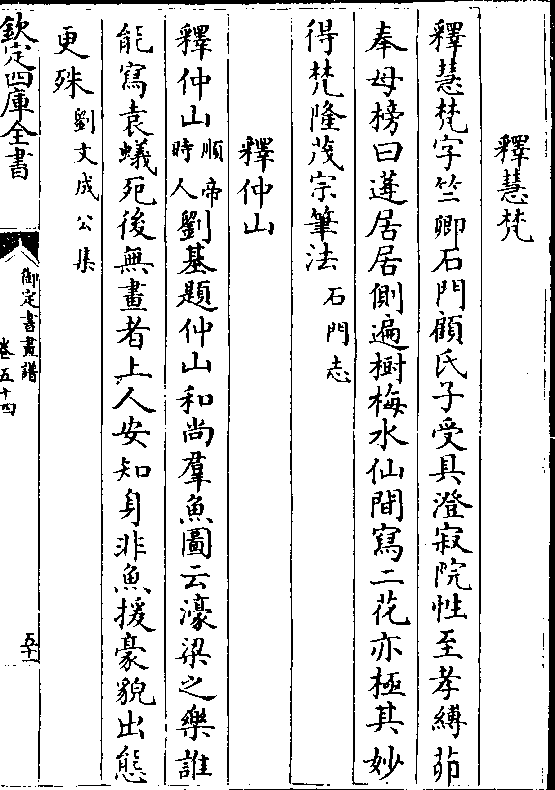 釋慧梵
釋慧梵字竺卿石門顧氏子受具澄寂院性至孝縛茆
奉母榜曰蓮居居側遍樹梅水仙間寫二花亦極其妙
得梵隆茂宗筆法石門志
釋仲山
釋仲山順帝時人劉基題仲山和尚羣魚圖云濠梁之樂誰
能寫袁蟻死後無畫者上人安知身非魚援豪貌出態
更殊劉文成公集
欽定四庫全書
御定書畫譜
卷五十四
五十一